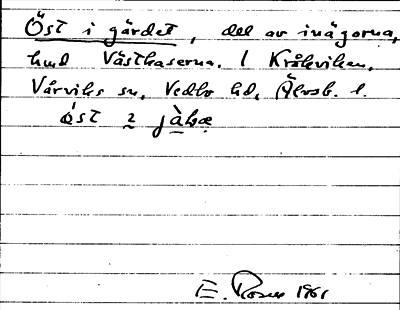 Öst i gärdet, del av inägorna,
hmd Västkaserna. / Kråkviken,
Vårviks sn, Vedbo hd, Älvsb. l.
öst 2 jàḷæ
E. Rosen 1961